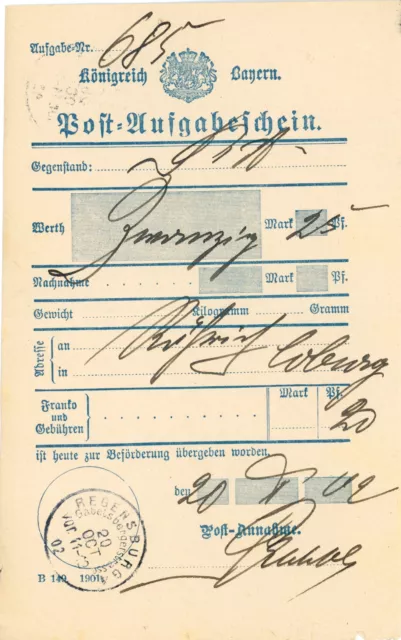 Aufgabe-Nr. 685
Königreich Bayern.
Post-Aufgabeschein.
Gegenstand:
Werth Zwanzig Mark 25 Pf.
Nachnahme Mark Pf.
Gewicht Kilogramm Gramm
Adresse
an Röhrich
in Coburg
Franko und Gebühren
Mark Pf.
20
ist heute zur Beförderung übergeben worden.
den 20 X 02
Post-Annahme.
REGENSBURG
20
OCT
02
B 149. 1901.